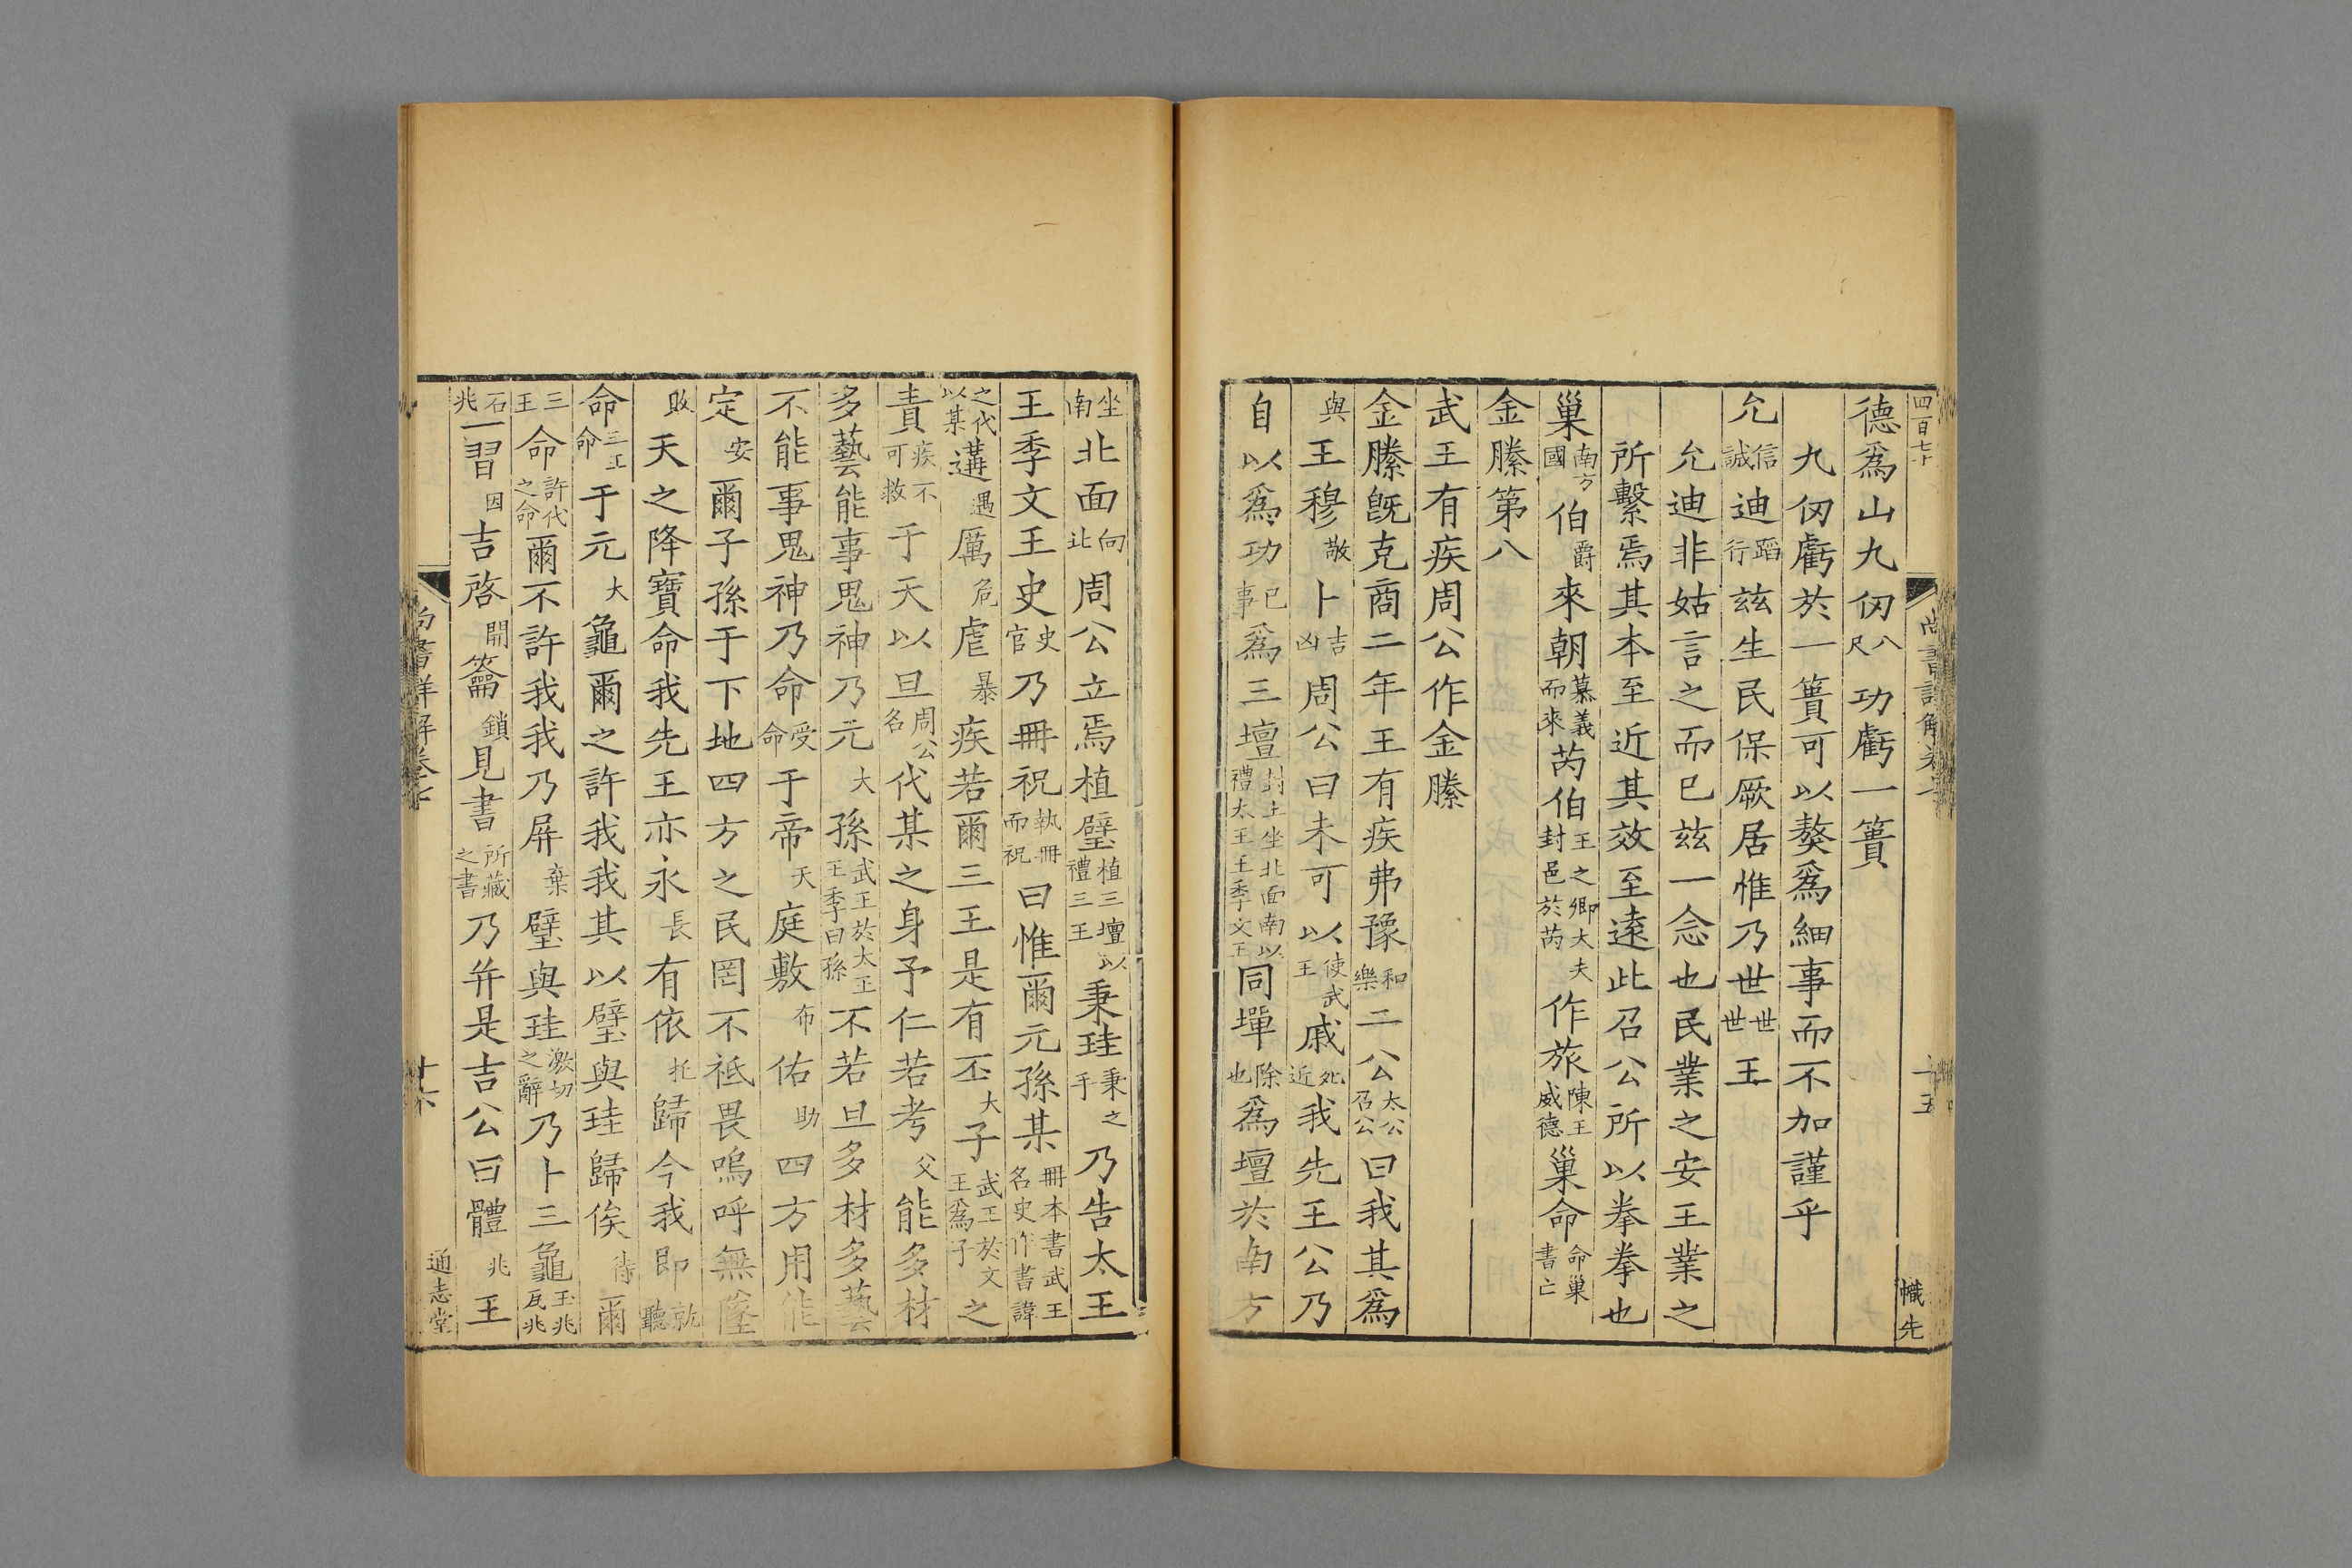 四百七十
尚書詳解卷
十五
幟先
德爲山九仞八尺功虧一簣
九仞虧於一簣可以獒爲細事而不加謹乎
允信誠迪蹈行兹生民保厥居惟乃世世世王
允迪非姑言之而已兹一念也民業之安王業之
所繫焉其本至近其效至遠此召公所以拳拳也
巢南方國伯爵來朝慕義而來芮伯王之卿大夫封邑於芮作旅陳王威德巢命命巢書亡
金縢第八
武王有疾周公作金縢
金縢既克商二年王有疾弗豫和樂二公太公召公曰我其爲
與王穆敬卜吉凶周公曰未可以使武王戚死近我先王公乃
自以爲功己事爲三壇封土坐北面南以禮太王王季文王同墠除也爲壇於南方
坐南北面向北周公立焉植璧植三壇以禮三王秉珪秉之手乃告太王
王季文王史史官乃冊祝執冊而祝曰惟爾元孫某冊本書武王名史作書諱
之代以某遘遇厲危虐暴疾若爾三王是有丕大子武王於文王爲子之
責疾不可救于天以旦周公名代某之身予仁若考父能多材
多藝能事鬼神乃元大孫武王於太王王季曰孫不若旦多材多藝
不能事鬼神乃命受命于帝天庭敷布佑助四方用能
定安爾子孫于下地四方之民罔不祗畏嗚呼無墜
敗天之降寶命我先王亦永長有依托歸今我即就聽
命三王命于元大龜爾之許我我其以璧與珪歸俟待爾
三王命許代之命爾不許我我乃屏棄璧與珪激切之辭乃卜三龜玉兆瓦兆
石兆一習因吉啓開籥鎖見書所藏之書乃并是吉公曰體兆王
尚書詳解卷七
十六
通志堂